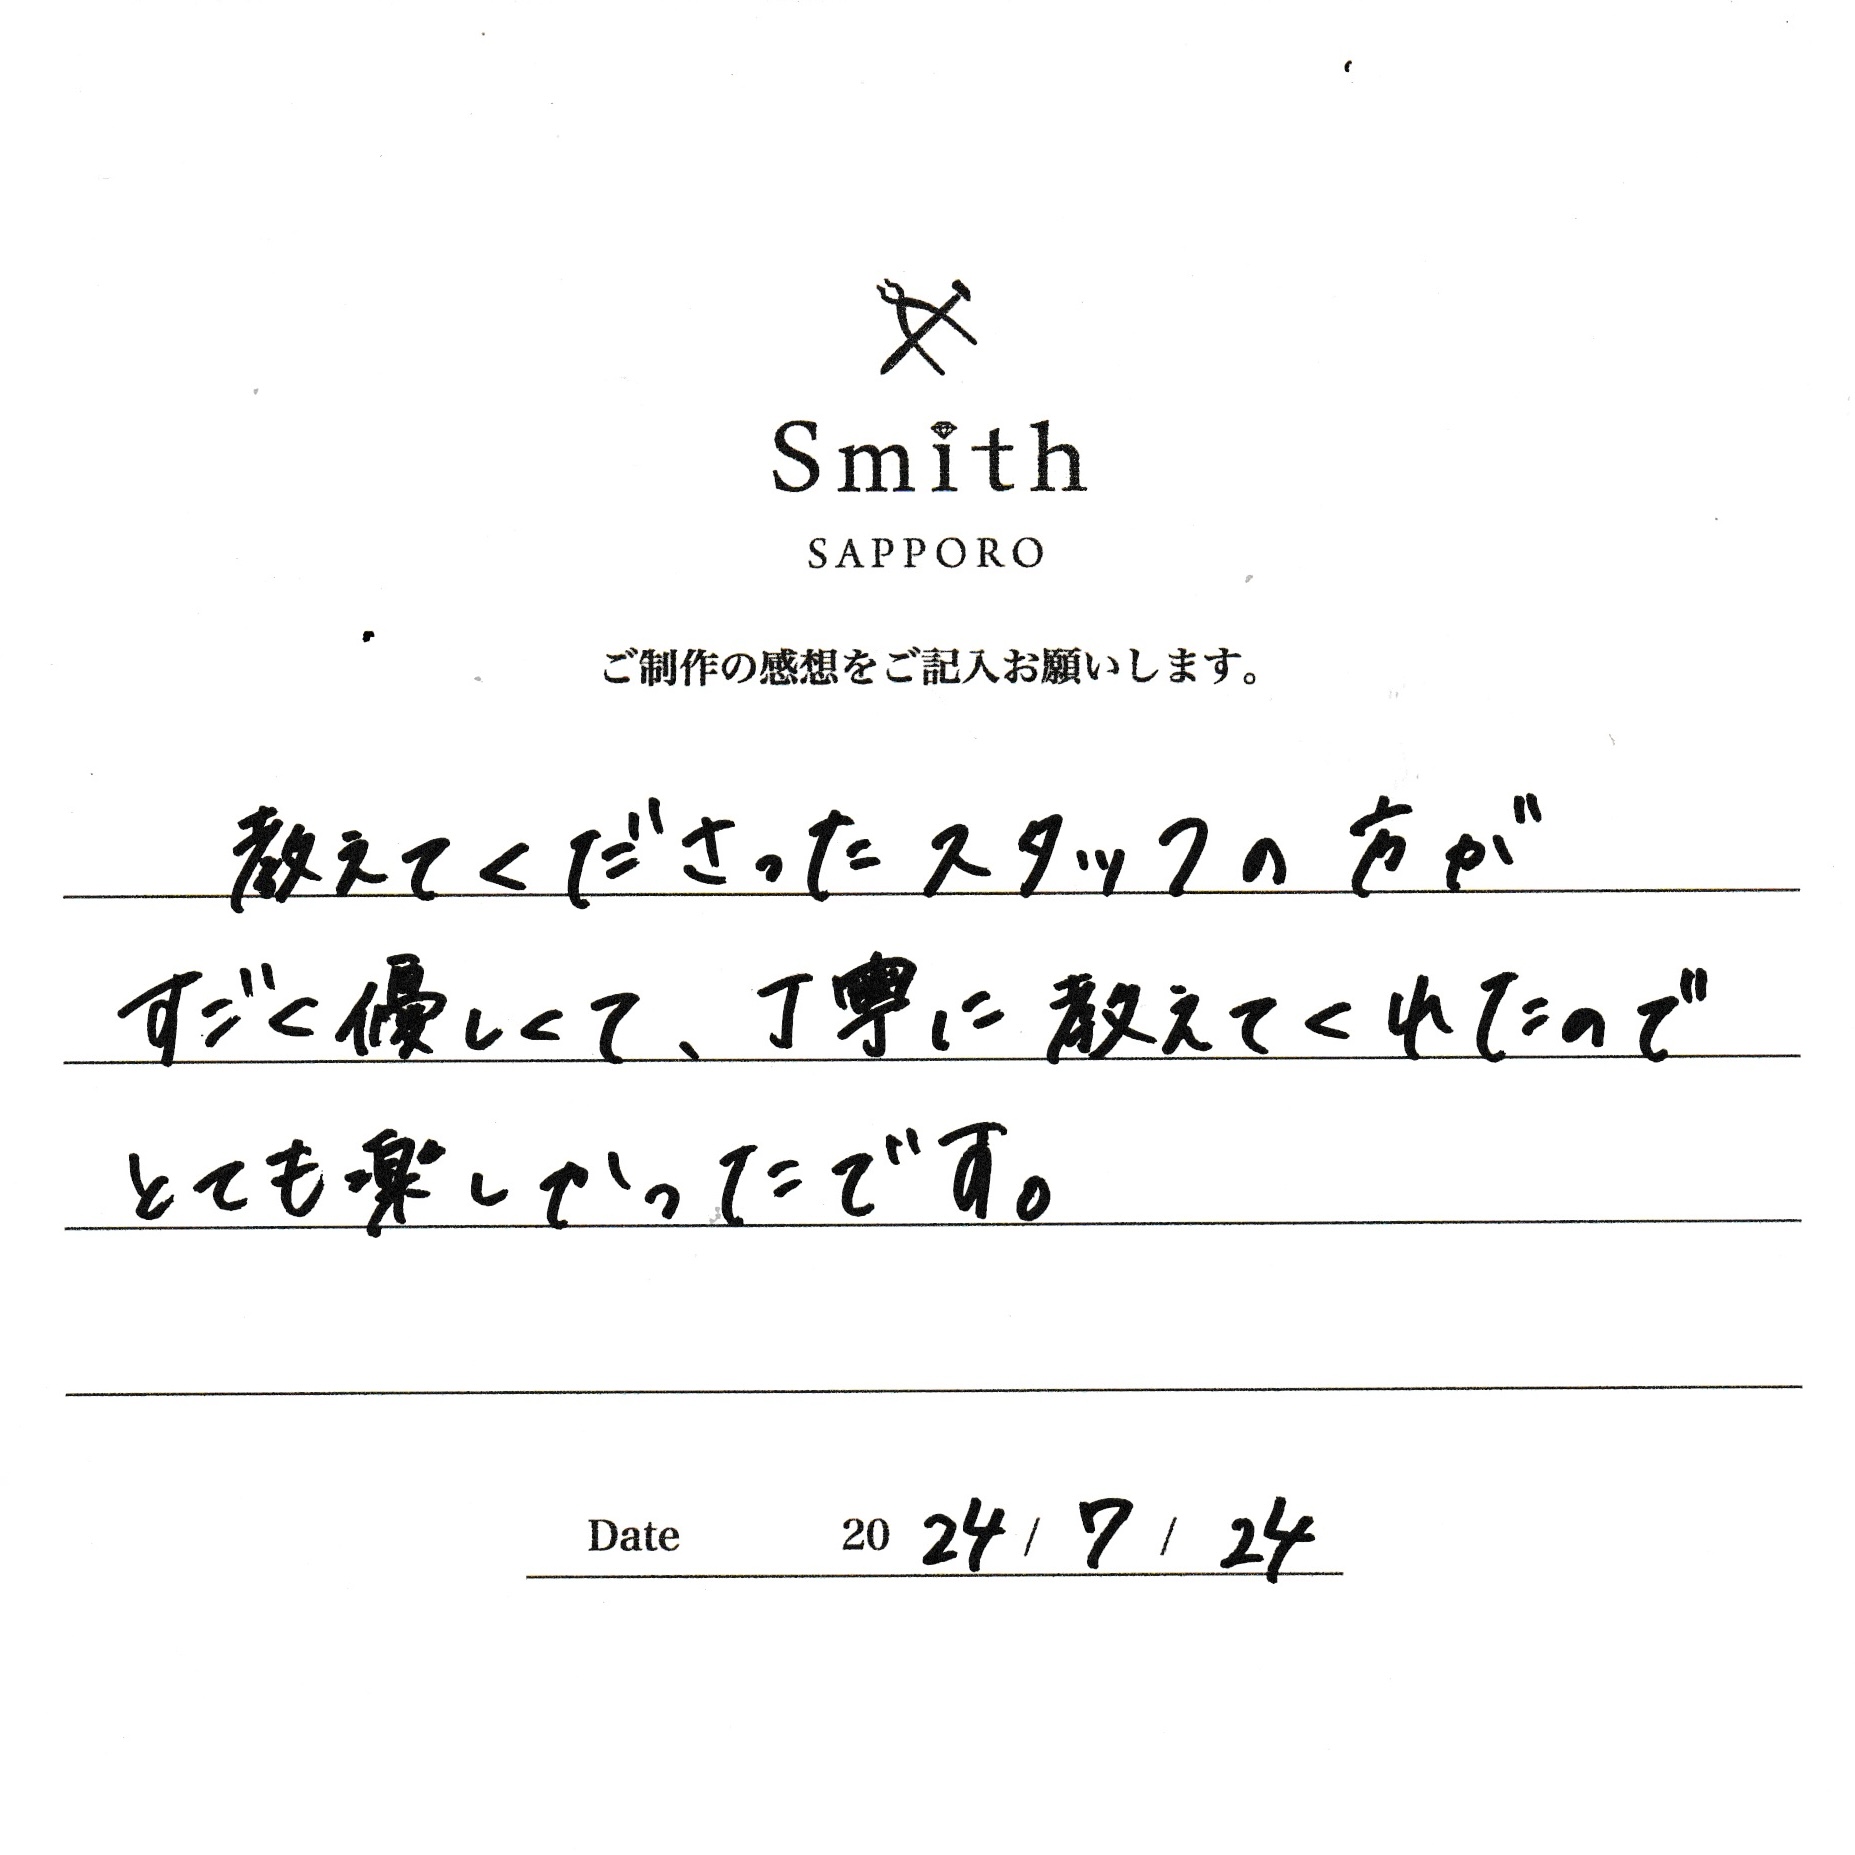 Smith
SAPPORO
ご制作の感想をご記入お願いします。
教えてくださったスタッフの方が
すごく優しくて、丁寧に教えてくれたので
とても楽しかったです。
Date 2024/7/24